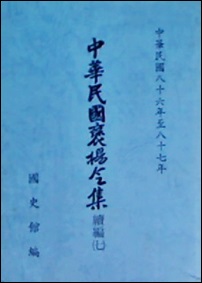 中華民國八十六年至八十七年
中華民國褒揚令集
續編(七)
國史館編